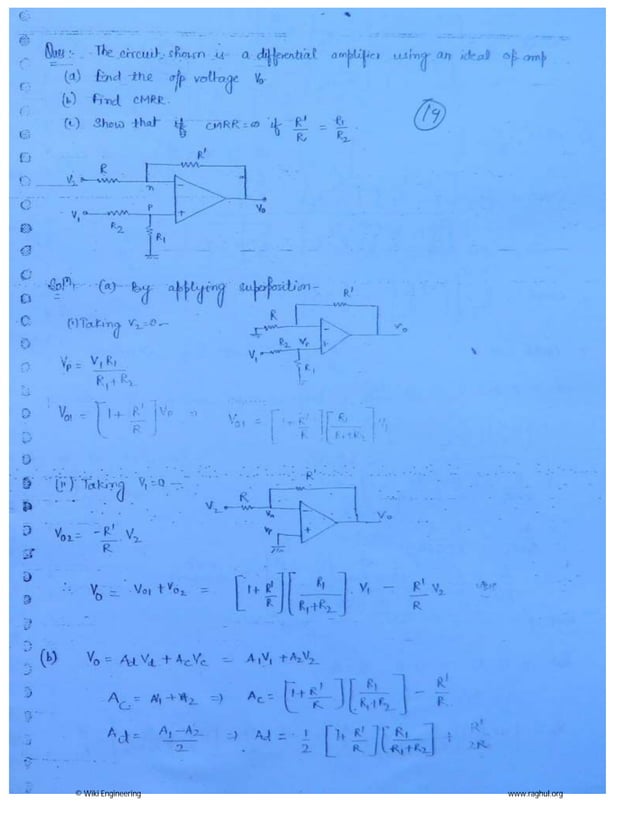 Ques:- The circuit shown is a differential amplifier using an ideal op amp
(a) find the o/p voltage V₀
(b) Find CMRR.
(c) Show that if CMRR = ∞ if R'/R = R₁/R₂.
(19)
R'
R
V₂
n
P
V₁
R₂
R₁
V₀
Solⁿ:- (a) By applying superposition-
(i) Taking V₂=0-
R'
R
V₀
V₁
R₂
Vₚ
R₁
Vₚ = V₁R₁/(R₁+R₂)
V₀₁ = [1 + R'/R] Vₚ ⇒ V₀₁ = [1 + R'/R][R₁/(R₁+R₂)] V₁
(ii) Taking V₁=0-
R'
V₂
R
Vₙ
Vₚ
V₀
V₀₂ = -R'/R . V₂
∴ V₀ = V₀₁ + V₀₂ = [1 + R'/R][R₁/(R₁+R₂)] . V₁ - R'/R V₂
(b) V₀ = A_d V_d + A_c V_c = A₁V₁ + A₂V₂
A_c = A₁ + A₂ ⇒ A_c = [1 + R'/R][R₁/(R₁+R₂)] - R'/R
A_d = (A₁ - A₂)/2 ⇒ A_d = 1/2 [1 + R'/R][R₁/(R₁+R₂)] + R'/2R
© Wiki Engineering
www.raghul.org